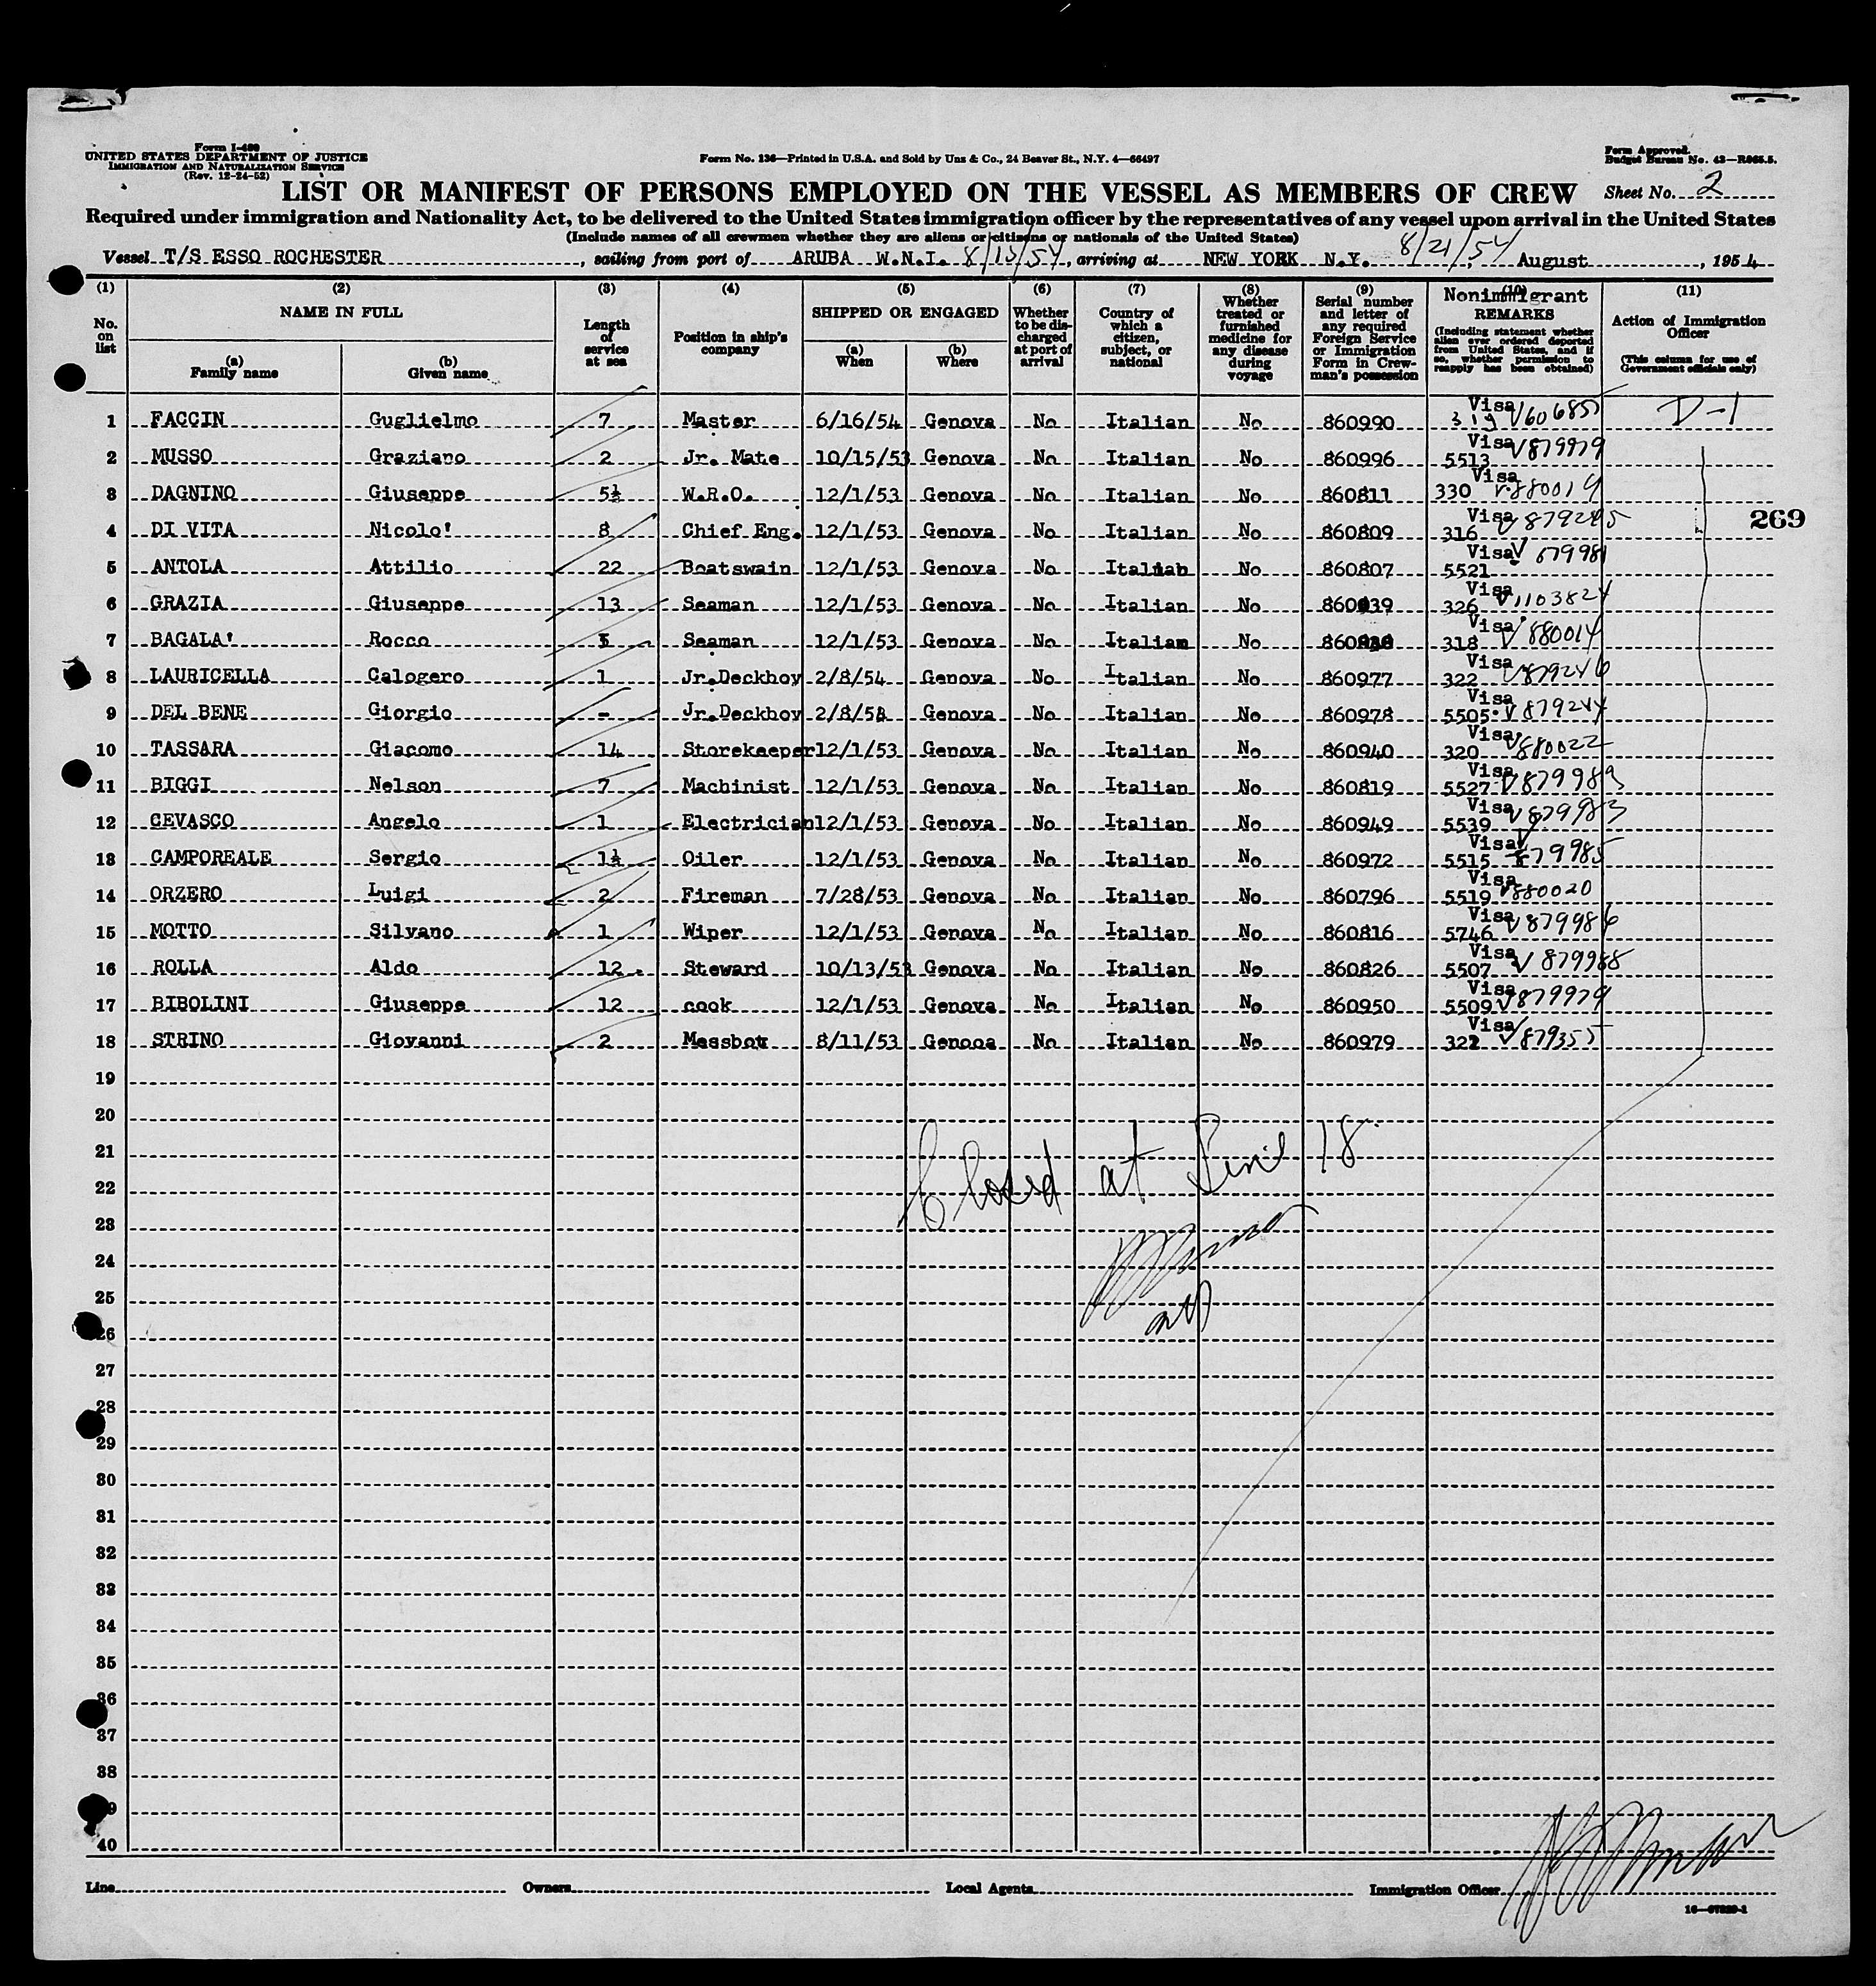 Form I-489
UNITED STATES DEPARTMENT OF JUSTICE
IMMIGRATION AND NATURALIZATION SERVICE
(Rev. 12-24-52)
Form No. 136—Printed in U.S.A. and Sold by Unz & Co., 24 Beaver St., N.Y. 4—66497
Form Approved.
Budget Bureau No. 43—R065.5.
LIST OR MANIFEST OF PERSONS EMPLOYED ON THE VESSEL AS MEMBERS OF CREW
Sheet No. 2
Required under immigration and Nationality Act, to be delivered to the United States immigration officer by the representatives of any vessel upon arrival in the United States
(Include names of all crewmen whether they are aliens or citizens or nationals of the United States)
Vessel T/S ESSO ROCHESTER, sailing from port of ARUBA W.N.I. 8/13/54, arriving at NEW YORK N.Y. 8/21/54 August, 1954
(1) No. on list
(2) NAME IN FULL (a) Family name (b) Given name
(3) Length of service at sea
(4) Position in ship's company
(5) SHIPPED OR ENGAGED (a) When (b) Where
(6) Whether to be discharged at port of arrival
(7) Country of which a citizen, subject, or national
(8) Whether treated or furnished medicine for any disease during voyage
(9) Serial number and letter of any required Foreign Service or Immigration Form in Crewman's possession
(10) Nonimmigrant REMARKS (Including statement whether alien ever ordered deported from United States, and if so, whether permission to reapply has been obtained)
(11) Action of Immigration Officer (This column for use of Government officials only)
1 FACCIN Guglielmo 7 Master 6/16/54 Genova No Italian No 860990 Visa 319 V60685 D-1
2 MUSSO Graziano 2 Jr. Mate 10/15/53 Genova No Italian No 860996 Visa 5513 V879979
3 DAGNINO Giuseppe 5½ W.R.O. 12/1/53 Genova No Italian No 860811 Visa 330 V880019
4 DI VITA Nicolo' 8 Chief Eng. 12/1/53 Genova No Italian No 860809 Visa 316
269
5 ANTOLA Attilio 22 Boatswain 12/1/53 Genova No Italian No 860807 Visa 5521 V 879981
6 GRAZIA Giuseppe 13 Seaman 12/1/53 Genova No Italian No 860939 Visa 326 V1103824
7 BAGALA' Rocco 5 Seaman 12/1/53 Genova No Italian No Visa 318 V880014
8 LAURICELLA Calogero 1 Jr.Deckboy 2/8/54 Genova No Italian No 860977 Visa 322 V879246
9 DEL BENE Giorgio - Jr.Deckboy 2/8/54 Genova No Italian No 860978 Visa 5505 V879244
10 TASSARA Giacomo 14 Storekeeper 12/1/53 Genova No Italian No 860940 Visa 320 V880022
11 BIGGI Nelson 7 Machinist 12/1/53 Genova No Italian No 860819 Visa 5527 V879989
12 CEVASCO Angelo 1 Electrician 12/1/53 Genova No Italian No 860949 Visa 5539 V879983
13 CAMPOREALE Sergio 1½ Oiler 12/1/53 Genova No Italian No 860972 Visa 5515 V879985
14 ORZERO Luigi 2 Fireman 7/28/53 Genova No Italian No 860796 Visa 5519 V880020
15 MOTTO Silvano 1 Wiper 12/1/53 Genova No Italian No 860816 Visa 5746 V879986
16 ROLLA Aldo 12 Steward 10/13/53 Genova No Italian No 860826 Visa 5507 V 879988
17 BIBOLINI Giuseppe 12 cook 12/1/53 Genova No Italian No 860950 Visa 5509 V879979
18 STRINO Giovanni 2 Messboy 8/11/53 Genooa No Italian No 860979 Visa 322 V879355
19
20
21
22
23
24
25
26
27
28
29
30
31
32
33
34
35
36
37
38
39
40
Closed at Line 18
Line
Owners
Local Agents
Immigration Officer